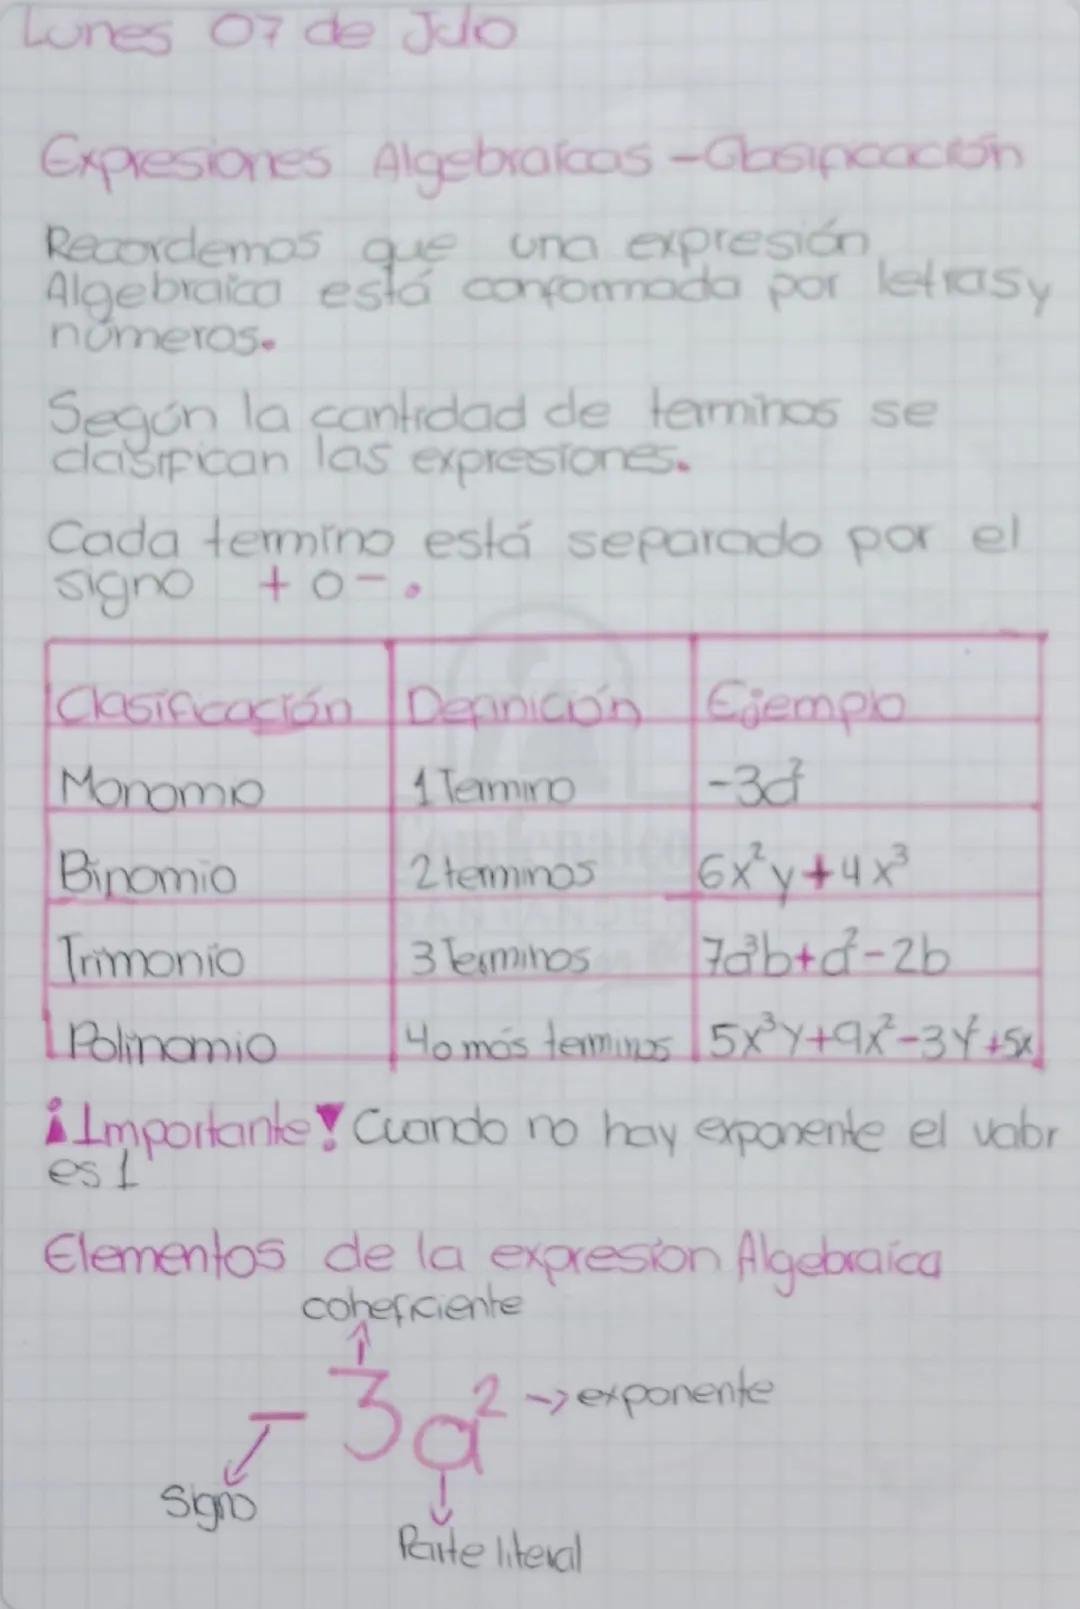 Lunes 07 de Julo
Expresiones Algebraicas - Clasificación
Recordemos que una expresión
Algebraica está conformada por letras y
números.
Según la cantidad de terminos se
clasifican las expresiones.
Cada termino está separado por el
signo + o - .
Clasificación Definición Ejemplo
Monomio 1 Termino -3a²
Binomio 2 terminos 6x²y+4x³
Trimonio 3 Terminos 7a³b+a²-2b
Polinomio 4 o más terminos 5x³y+9x²-3y²+5x
¡Importante! Cuando no hay exponente el valor
es 1
Elementos de la expresion Algebraica
coheficiente
-3a² -> exponente
Signo
Parte literal